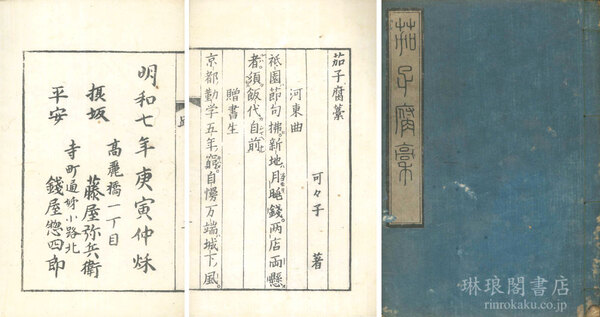 茄子腐稾
茄子腐藁
可々子 著
河東曲
祇園節句掃新地月晦錢両店両懸
者須飯代自前
贈書生
京都勤学五年窮自慢万端城下風
明和七年庚寅仲秌
高麗橋一丁目
摂坂 藤屋弥兵衛
寺町通姉小路北
平安 錢屋惣四郎
琳琅閣書店
rinrokaku.co.jp